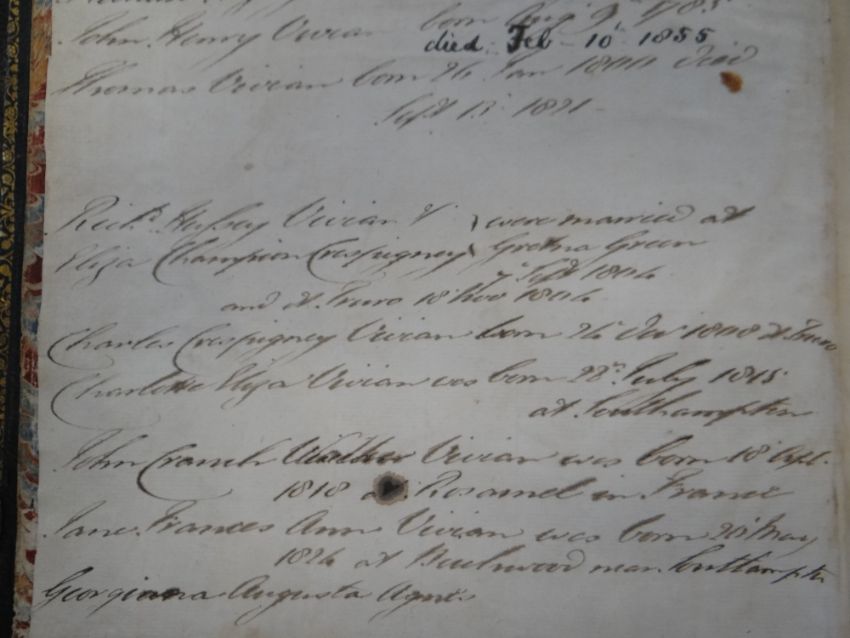 John Henry Vivian born Aug 9th 1785
died Feb 10 1855
Thomas Vivian born 26 Jan 1800 Died
Sept 13 1821
Richd Hussey Vivian & } were married at
Eliza Champion Crespigney } Gretna Green
7 Septr 1804
and at Truro 18 Nov 1804
Charles Crespigney Vivian born 24 Decr 1808 at Truro
Charlotte Eliza Vivian was born 28th July 1815
at Southampton
John Cranch Walker Vivian was born 18 Apl
1818 at Rosamel in France
Jane Frances Ann Vivian was born 28 May
1824 at Beechwood near Southampton
Georgiana Augusta Agnes